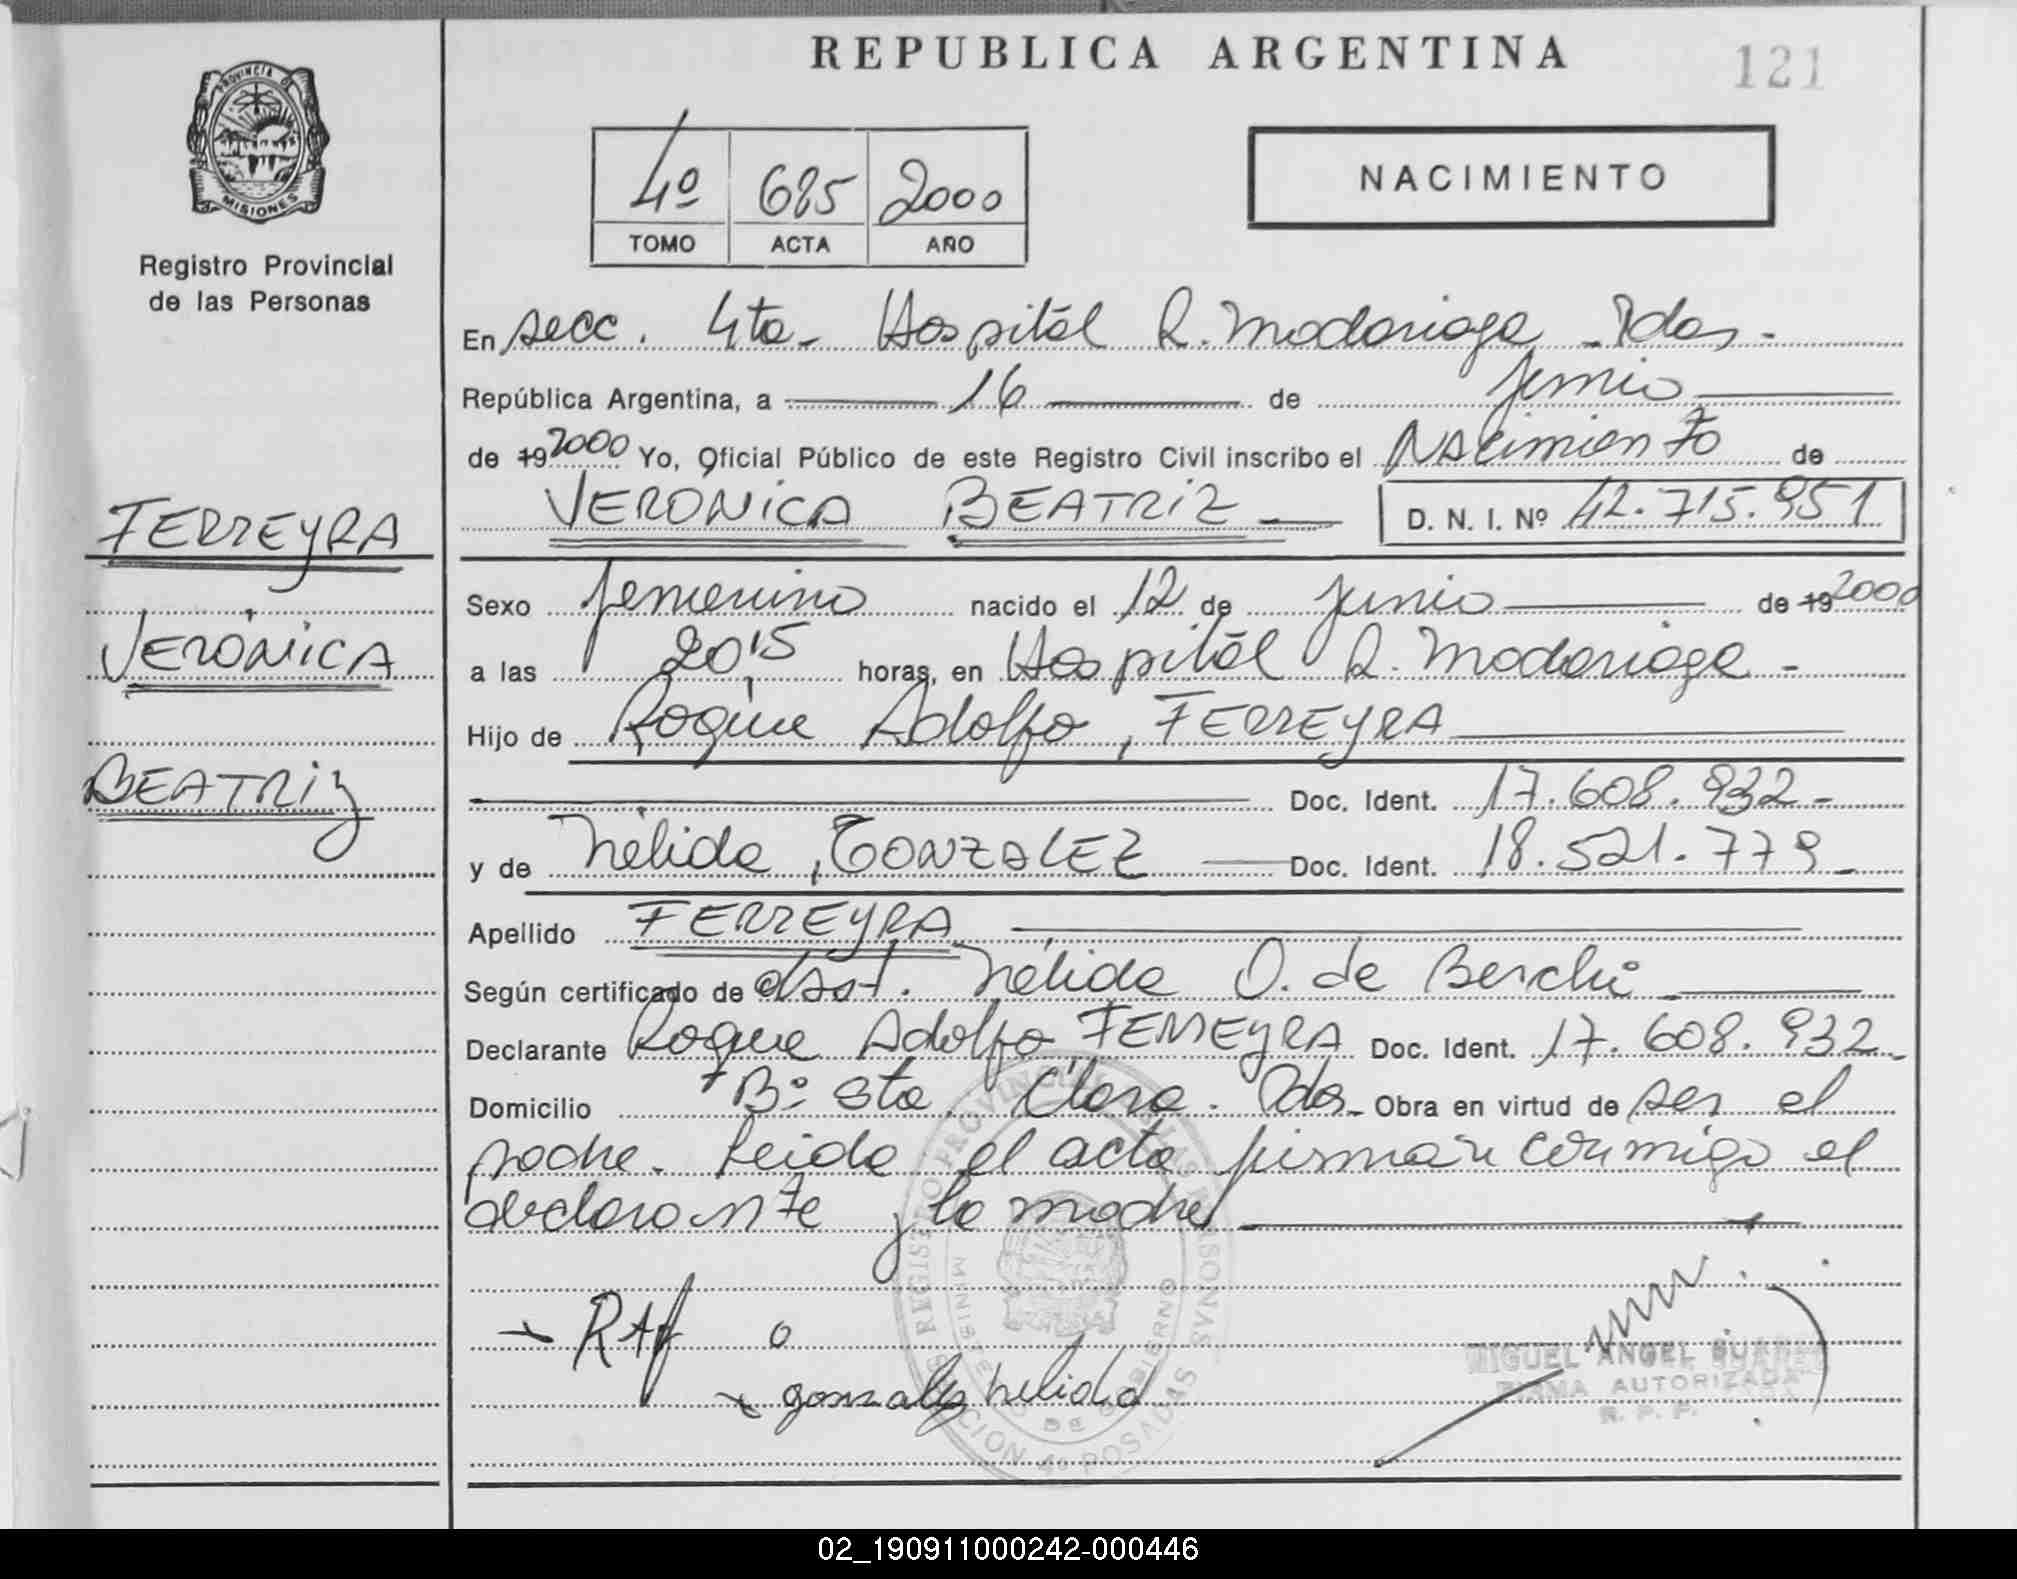 REPUBLICA ARGENTINA
121
PROVINCIA DE
MISIONES
Registro Provincial
de las Personas
4º 685 2000
TOMO ACTA AÑO
NACIMIENTO
En secc. 4ta - Hospital R. Madariaga - Pdas -
República Argentina, a 16 de junio
de 19 2000 Yo, Oficial Público de este Registro Civil inscribo el Nacimiento de
VERÓNICA BEATRIZ D. N. I. Nº 42.715.951
FERREYRA
VERÓNICA
BEATRIZ
Sexo femenino nacido el 12 de junio de 19 2000
a las 20,15 horas, en Hospital R. Madariaga -
Hijo de Roque Adolfo, FERREYRA
Doc. Ident. 17.608.932 -
y de Nélida, GONZALEZ Doc. Ident. 18.521.779 -
Apellido FERREYRA
Según certificado de obst. Nélida O. de Berchi
Declarante Roque Adolfo FERREYRA Doc. Ident. 17.608.932 -
Domicilio Bº Sta. Clara. Pdas - Obra en virtud de ser el
padre. Leida el acta firman conmigo el
declarante y la madre
REGISTRO PROVINCIAL DE LAS PERSONAS
MINISTERIO DE GOBIERNO
SECCION 4º POSADAS
RAF
gonzalez nelida
MIGUEL ANGEL SUAREZ
FIRMA AUTORIZADA
R. P. P.
02_190911000242-000446